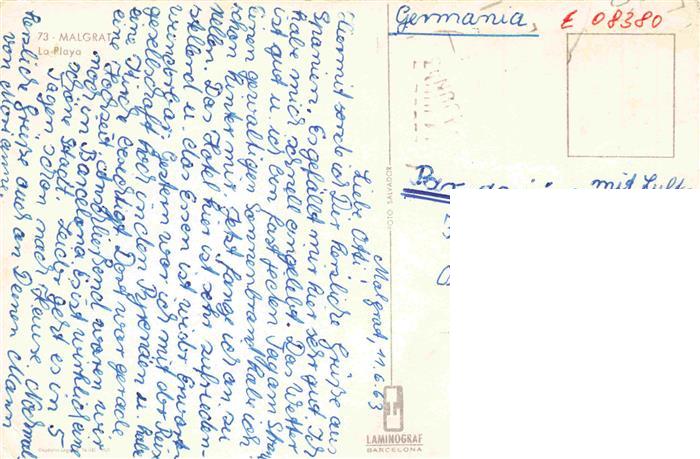 73 - MALGRAT
La Playa
Germania,
E 08380
mit Luft-
Malgrat, 11.6.63
Liebe Otti!
Hiermit sende ich Dir herzliche Grüße aus
Spanien. Es gefällt mir hier sehr gut. Ich
habe mich schnell eingelebt. Das Wetter
ist gut u. ich bin fast jeden Tag am Strand.
Einen gewaltigen Sonnenbrand habe ich
schon hinter mir. Jetzt fange ich an zu
pellen. Das Hotel hier ist sehr zufrieden-
stellend u. das Essen ist wider Erwarten
wunderbar. Gestern war ich mit der Reise
gesellschaft hoch in den Pyrenäen u. habe
eine Kirche besichtigt. Dort war gerade
eine Hochzeit. Anschließend waren wir
noch in Barcelona. Es ist wirklich eine
schöne Stadt. Leider geht es in 5
Tagen schon nach Hause. Nochmal
herzliche Grüße auch an Deinen Mann
von Marianne.
FOTO SALVADOR
LAMINOGRAF
BARCELONA